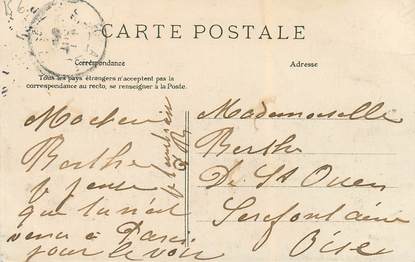 CARTE POSTALE
Correspondance
Adresse
Tous les pays étrangers n'acceptent pas la
correspondance au recto, se renseigner à la Poste.
Berthe
que tu n'ai
venu à Paris
pour le voir
Mademoiselle
Berthe
De St Ouen
Serifontaine
Oise